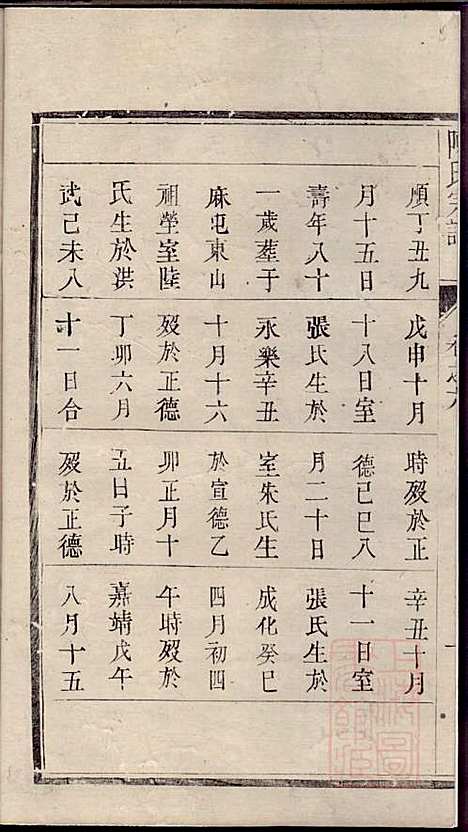 陳氏宗譜
卷之六
順丁丑九
月十五日
壽年八十
一歲塟于
麻屯東山
祖塋室陸
氏生於洪
武己未八
戊申十月
十八日室
張氏生於
永樂辛丑
十月十六
歿於正德
丁卯六月
十一日合
時歿於正
德己巳八
月二十日
室朱氏生
於宣德乙
卯正月十
五日子時
歿於正德
辛丑十月
十一日室
張氏生於
成化癸巳
四月初四
午時歿於
嘉靖戊午
八月十五